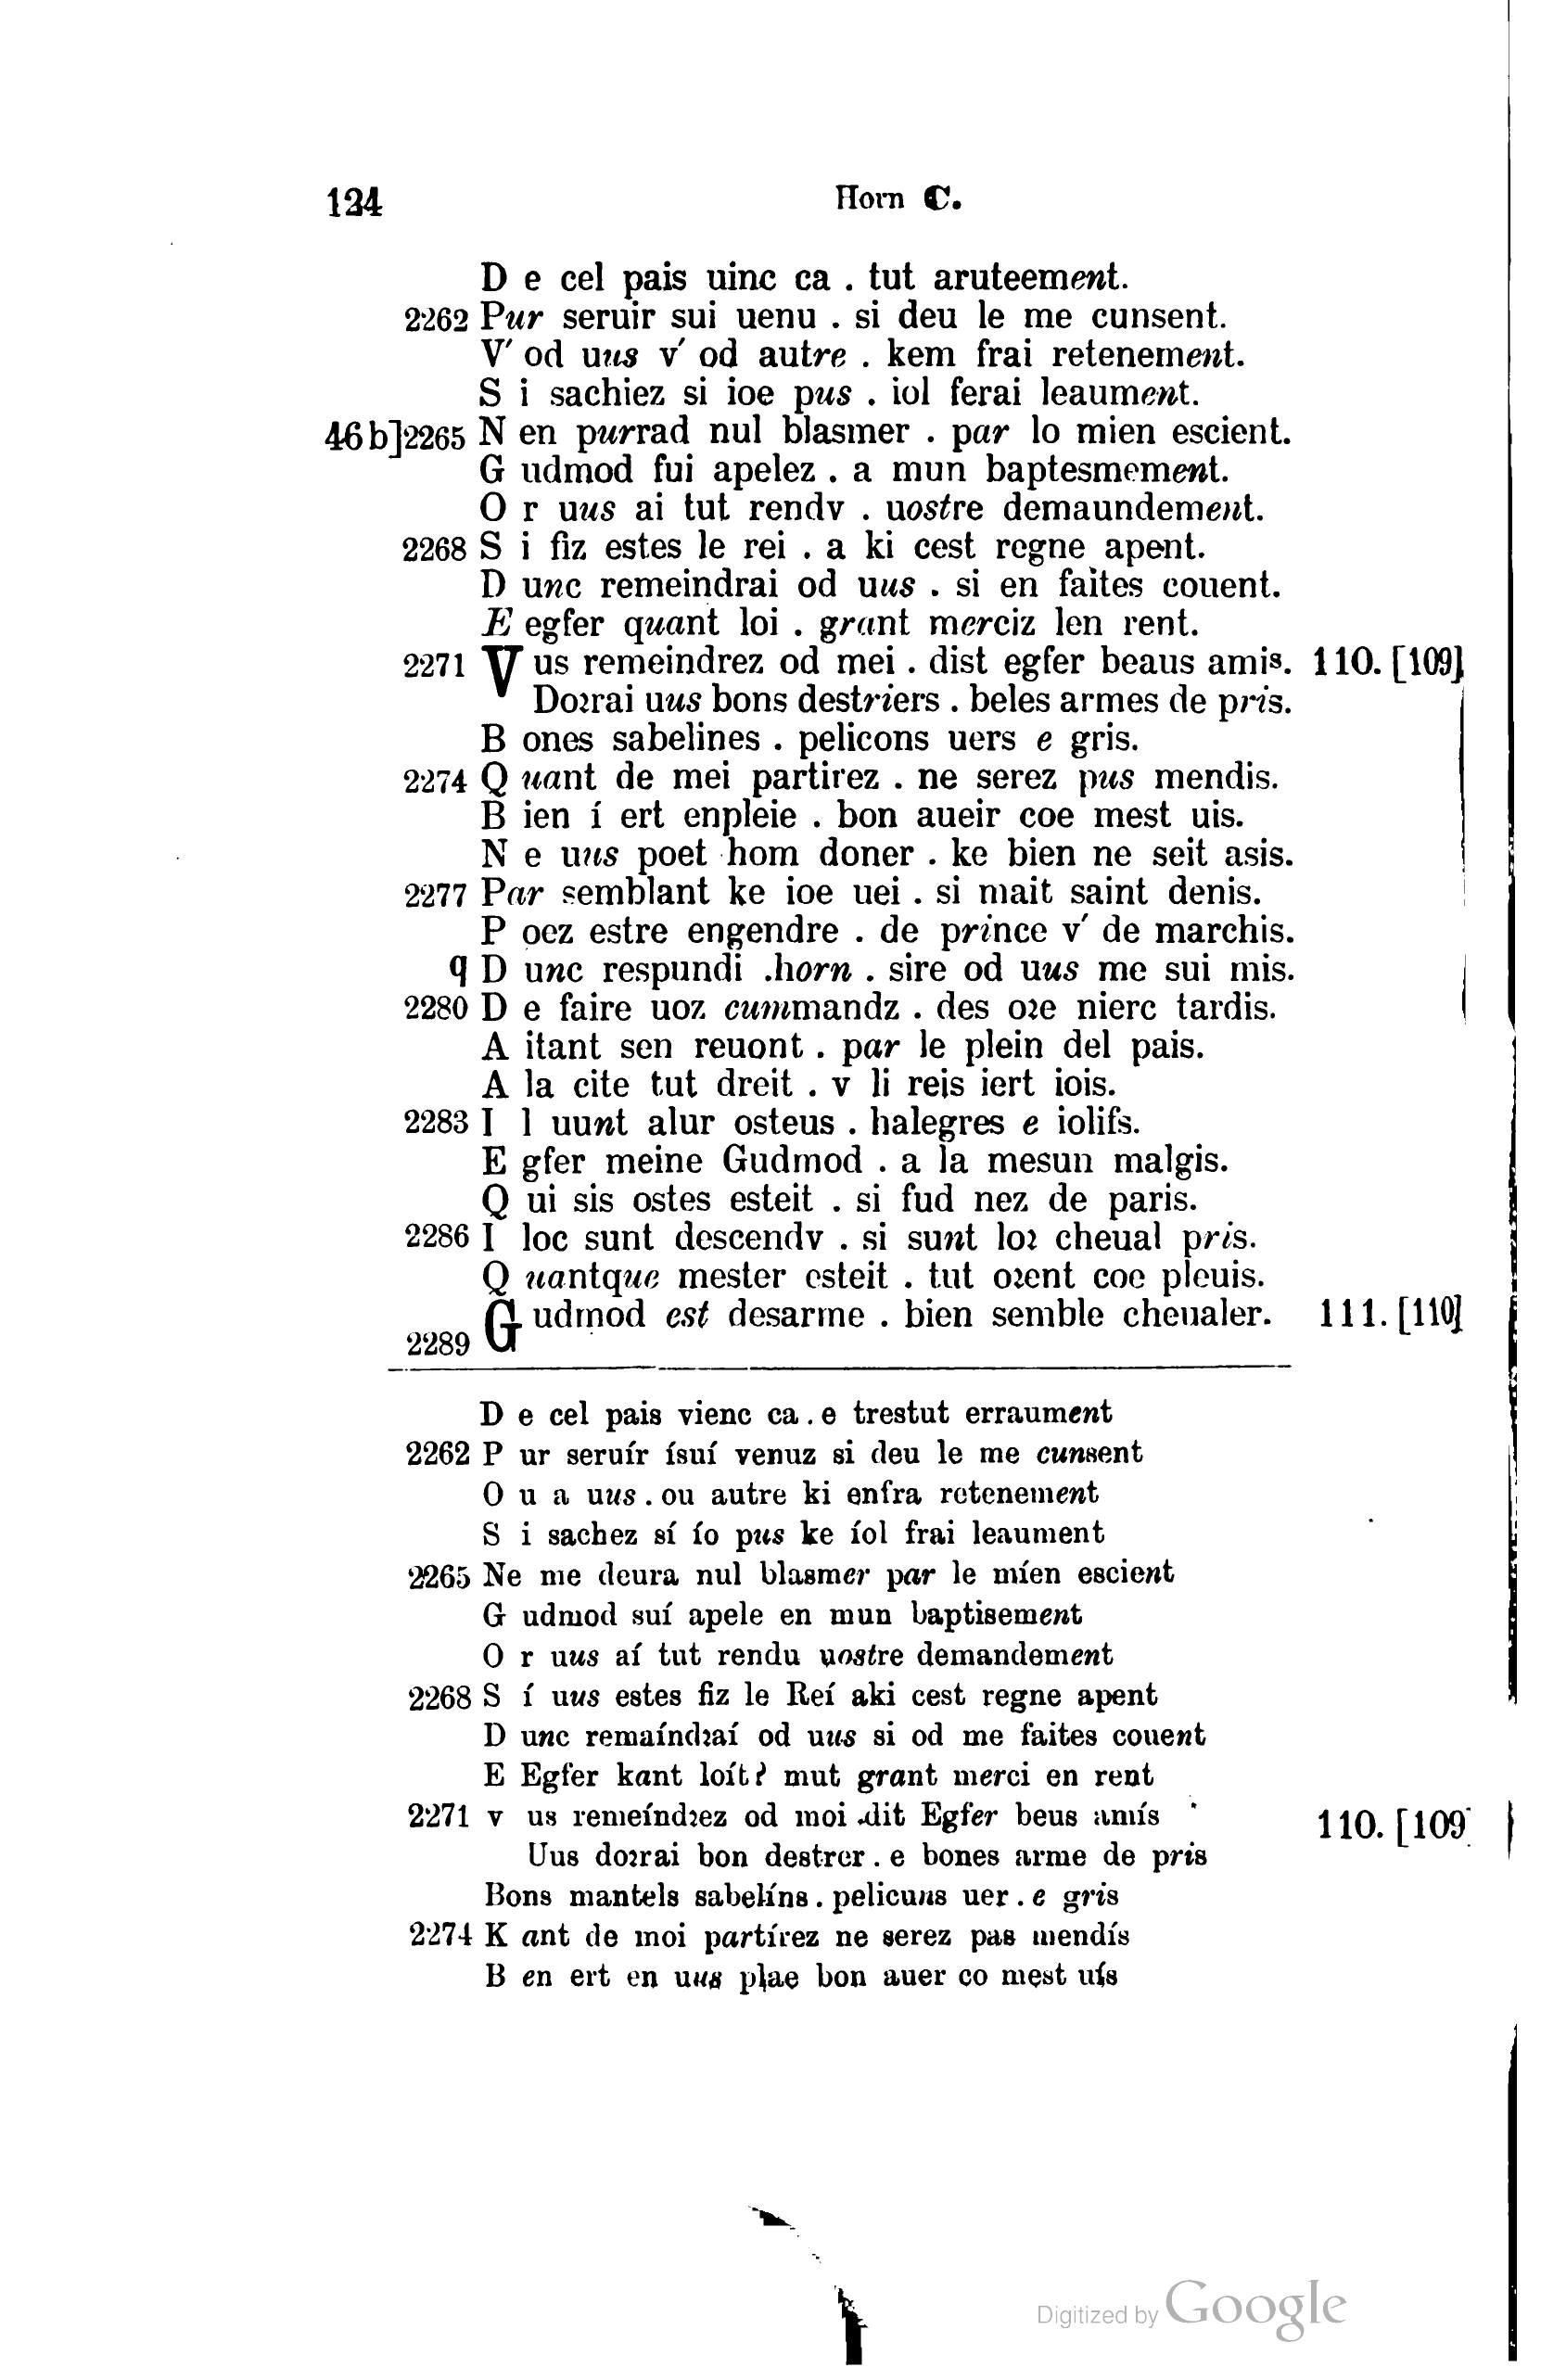 124
Horn C.
D e cel pais uinc ca . tut aruteement.
2262 Pur seruir sui uenu . si deu le me cunsent.
V' od uus v' od autre . kem frai retenement.
S i sachiez si ioe pus . iol ferai leaument.
46 b]2265 N en purrad nul blasmer . par lo mien escient.
G udmod fui apelez . a mun baptesmement.
O r uus ai tut rendv . uostre demaundement.
2268 S i fiz estes le rei . a ki cest regne apent.
D unc remeindrai od uus . si en faites couent.
E egfer quant loi . grant merciz len rent.
2271 V us remeindrez od mei . dist egfer beaus amis. 110. [109]
Doꝛrai uus bons destriers . beles armes de pris.
B ones sabelines . pelicons uers e gris.
2274 Q uant de mei partirez . ne serez pus mendis.
B ien í ert enpleie . bon aueir coe mest uis.
N e uus poet hom doner . ke bien ne seit asis.
2277 Par semblant ke ioe uei . si mait saint denis.
P oez estre engendre . de prince v' de marchis.
q D unc respundi .horn . sire od uus me sui mis.
2280 D e faire uoz cummandz . des oꝛe nierc tardis.
A itant sen reuont . par le plein del pais.
A la cite tut dreit . v li reis iert iois.
2283 I l uunt alur osteus . halegres e iolifs.
E gfer meine Gudmod . a la mesun malgis.
Q ui sis ostes esteit . si fud nez de paris.
2286 I loc sunt descendv . si sunt loꝛ cheual pris.
Q uantque mester esteit . tut oꝛent coe pleuis.
G udmod est desarme . bien semble cheualer. 111. [110]
2289
D e cel pais vienc ca . e trestut erraument
2262 P ur seruír ísuí venuz si deu le me cunsent
O u a uus . ou autre ki enfra retenement
S i sachez sí ío pus ke íol frai leaument
2265 Ne me deura nul blasmer par le míen escient
G udmod suí apele en mun baptisement
O r uus aí tut rendu uostre demandement
2268 S í uus estes fiz le Reí aki cest regne apent
D unc remaíndꝛaí od uus si od me faites couent
E Egfer kant loít? mut grant merci en rent
2271 v us remeíndꝛez od moi .dit Egfer beus amís 110. [109
Uus doꝛrai bon destrer . e bones arme de pris
Bons mantels sabelíns . pelicuns uer . e gris
2274 K ant de moi partírez ne serez pas mendís
B en ert en uus plae bon auer co mest uís
Digitized by Google